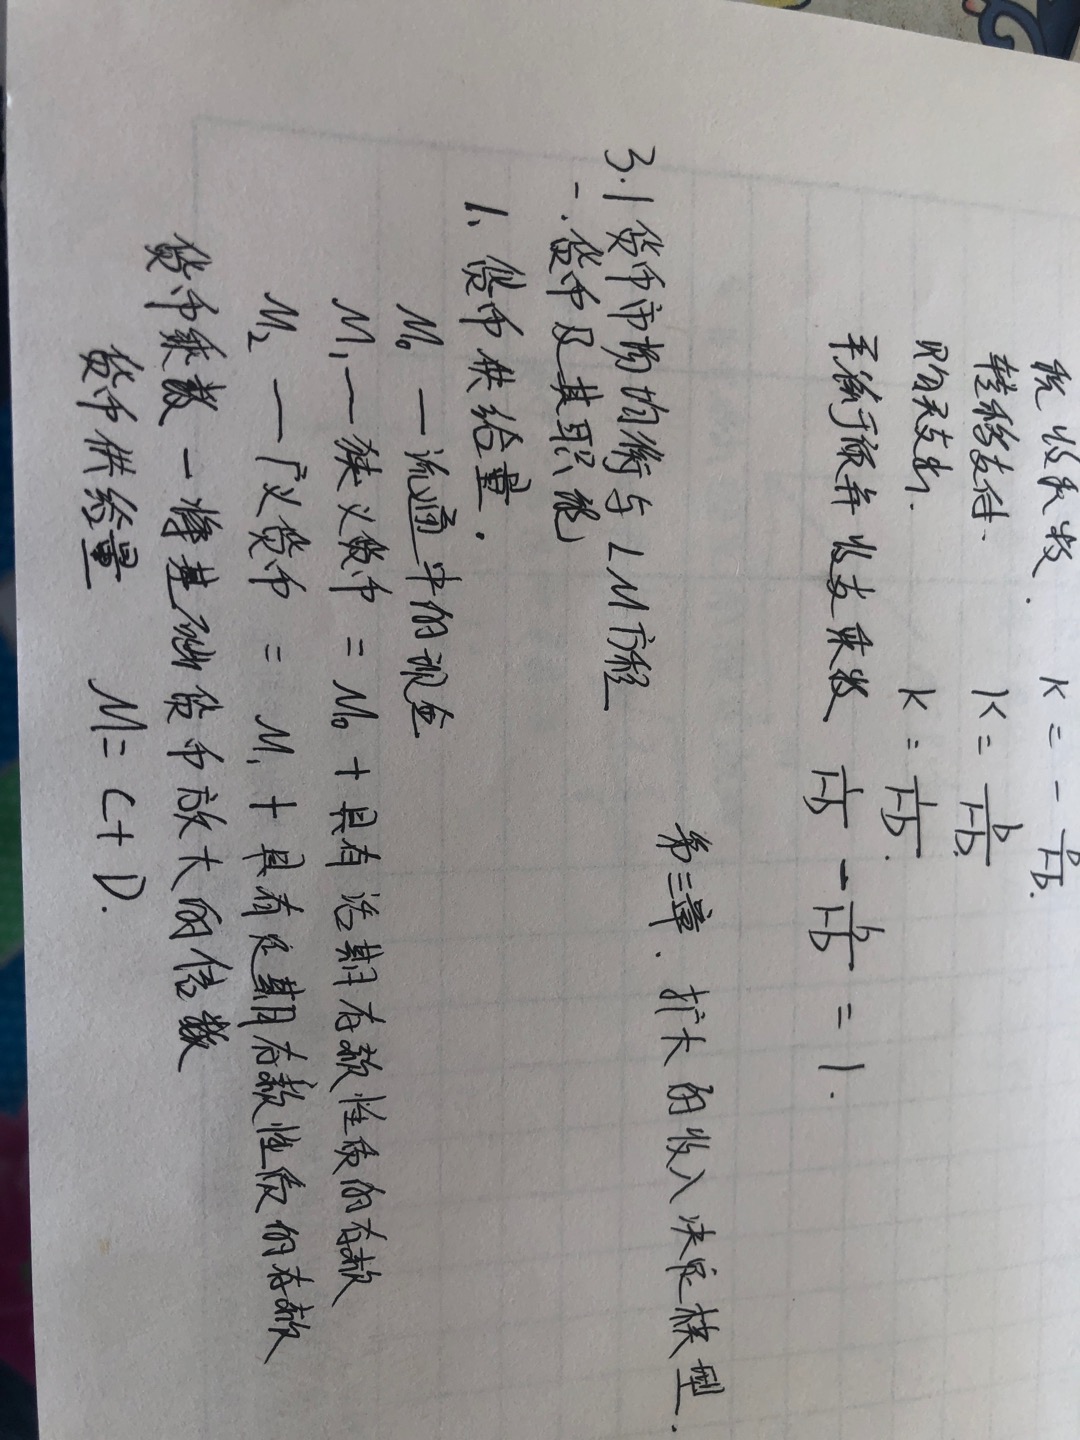 税收乘数. K = - b/1-b.
转移支付. K = b/1-b.
购买支出. K = 1/1-b.
平衡预算收支乘数 1/1-b - b/1-b = 1.
第三章. 扩大的收入决定模型.
3.1 货币市场均衡与LM方程
一. 货币及其职能
1、货币供给量.
M₀ — 流通中的现金
M₁ — 狭义货币 = M₀ + 具有活期存款性质的存款
M₂ — 广义货币 = M₁ + 具有定期存款性质的存款
货币乘数 — 将基础货币放大的倍数
货币供给量 M = C + D.